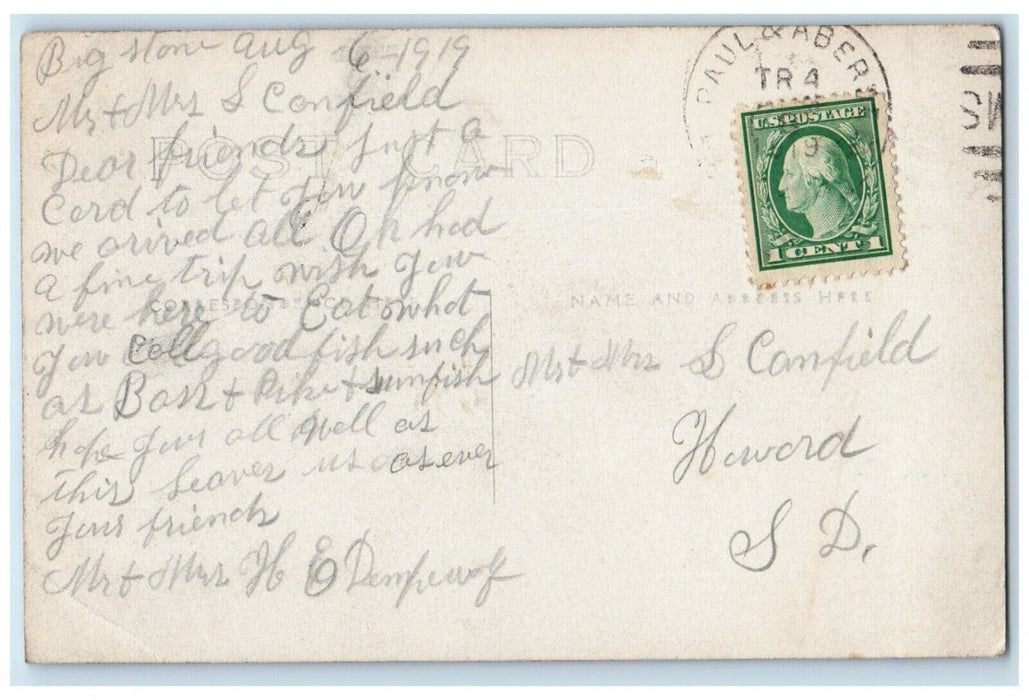 Big stone Aug 6-1919
Mr + Mrs S Canfield
Dear friends Just a
Card to let you know
we arived all Ok had
a fine trip wish you
were here to Eat what
you Call good fish such
as Bass + Pike + sunfish
hope your all well as
this leaves us as ever
your friends
Mr + Mrs H E Dempewolf
POST CARD
CORRESPONDENCE HERE
NAME AND ADDRESS HERE
PAUL & ABER
TR 4
9
U.S. POSTAGE
1 CENT 1
Mr + Mrs S Canfield
Howard
S D.